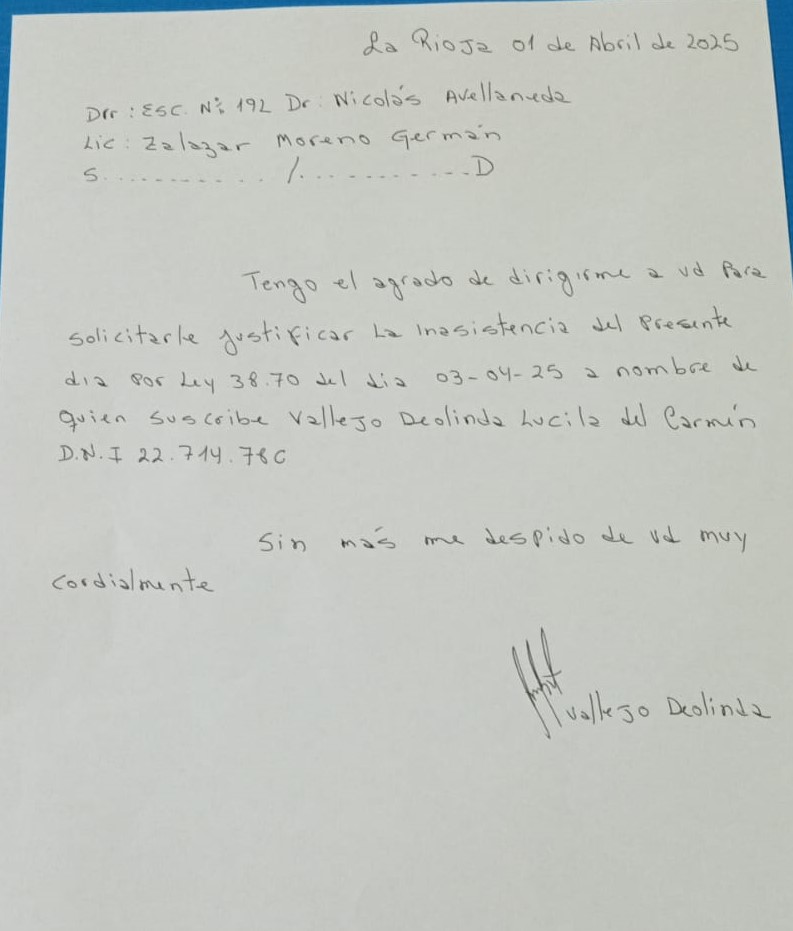 La Rioja 01 de Abril de 2025
Drr: Esc. N° 192 Dr. Nicolás Avellaneda
Lic: Zalazar Moreno Germán
S............/............D
Tengo el agrado de dirigirme a ud Para
solicitarle justificar La Inasistencia del Presente
dia por Ley 38.70 del dia 03-04-25 a nombre de
quien suscribe Vallejo Deolinda Lucila del Carmín
D.N.I 22.714.
Sin más me despido de ud muy
cordialmente
Vallejo Deolinda